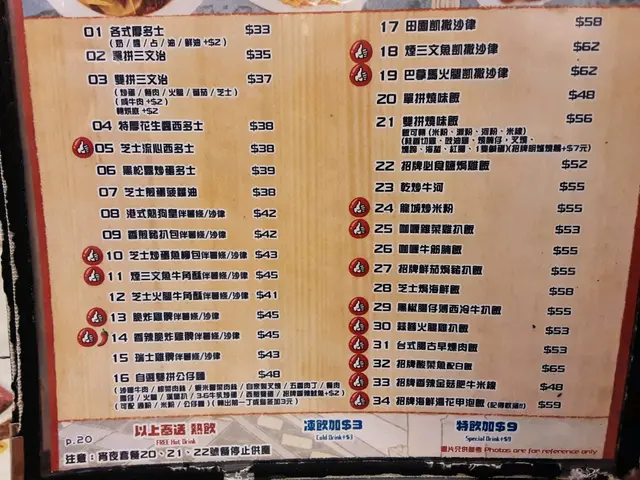 01 各式厚多士 $33
(奶/醬/占/油/鮮油+$2)
02 烘拼三文治 $35
03 雙拼三文治 $37
(炒蛋/餐肉/火腿/番茄/芝士)
(燒牛肉+$2)
轉烘底+$2
04 特厚花生醬西多士 $38
05 芝士流心西多士 $38
06 黑松露炒蛋多士 $39
07 芝士煎蛋菠蘿油 $38
08 港式熱狗皇伴薯條/沙律 $42
09 香煎豬扒包伴薯條/沙律 $42
10 芝士炒蛋魚柳包伴薯條/沙律 $43
11 煙三文魚牛角酥伴薯條/沙律 $45
12 芝士火腿牛角酥伴薯條/沙律 $41
13 脆炸雞髀伴薯條/沙律 $45
14 香辣脆炸雞髀伴薯條/沙律 $45
15 瑞士雞髀伴薯條/沙律 $43
16 自選雙拼公仔麵 $48
17 田園凱撒沙律 $58
18 煙三文魚凱撒沙律 $62
19 巴拿馬火腿凱撒沙律 $62
20 單拼燒味飯 $48
21 雙拼燒味飯 $56
飯可轉(米粉、瀨粉、河粉、米線)
22 招牌必食鹽焗雞飯 $52
23 乾炒牛河 $55
24 龍城炒米粉 $55
25 咖喱雜菜雞扒飯 $53
26 咖喱牛筋腩飯 $55
27 招牌鮮茄焗豬扒飯 $55
28 芝士焗海鮮飯 $58
29 黑椒腸仔薄西冷牛扒飯 $55
30 蒜蓉火腿雞扒飯 $53
31 台式腸古早燒肉飯 $53
32 招牌酸菜魚配白飯 $65
33 招牌香辣金菇肥牛米線 $48
34 招牌海鮮湯花甲泡飯 $59
p.20
以上奉送 熱飲
FREE Hot Drink
凍飲加$3
Cold Drink+$3
特飲加$9
Special Drink+$9
注意:宵夜套餐20、21、22號餐停止供應
圖片只供參考 Photos are for reference only